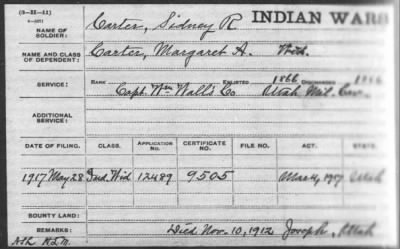 (3-III-41)
INDIAN WARS
NAME OF SOLDIER: Carter, Sidney R
NAME AND CLASS OF DEPENDENT: Carter, Margaret A. Wid.
SERVICE: RANK ENLISTED 1866 DISCHARGED 1866
Capt. Wm Wall's Co Utah Mil. Cav.
ADDITIONAL SERVICE:
DATE OF FILING. CLASS. APPLICATION NO. CERTIFICATE NO. FILE NO. ACT. STATE.
1917 May 28 Ind. Wid 12489 9505 Mar 4, 1917 Utah
BOUNTY LAND:
REMARKS: Died Nov. 10, 1912 Joseph, Utah